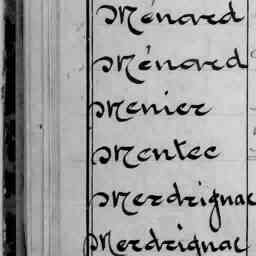 Ménard
Ménard
Menier
Mentec
Merdrignac
Merdrignac